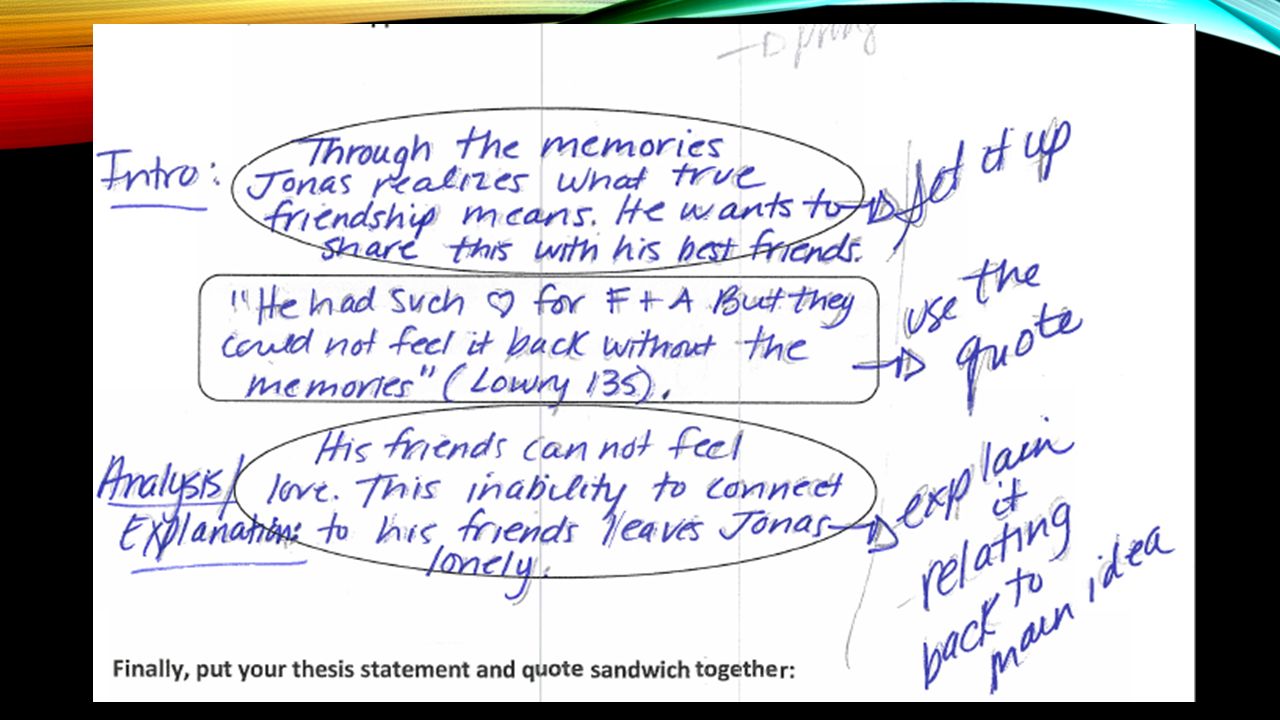 Intro:
Through the memories
Jonas realizes what true
friendship means. He wants to
share this with his best friends.
→ set it up
"He had such ♡ for F + A But they
could not feel it back without the
memories" (Lowry 135).
→ use the
quote
Analysis/
Explanation:
His friends can not feel
love. This inability to connect
to his friends leaves Jonas
lonely.
→ explain
it
relating
back to
main idea
Finally, put your thesis statement and quote sandwich together: